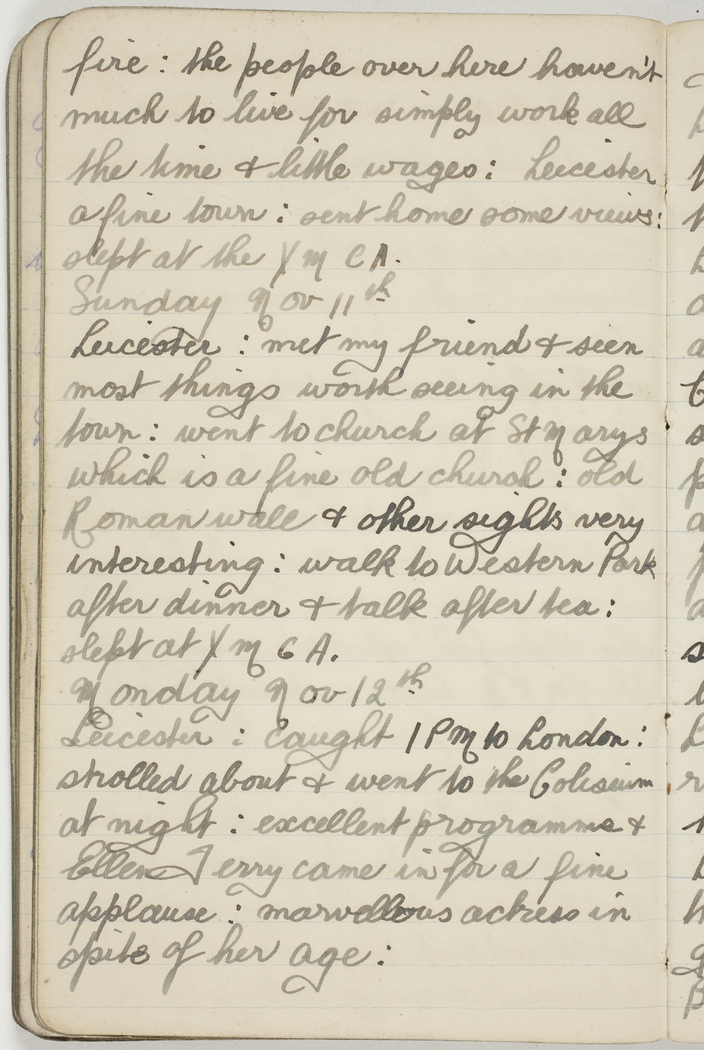 fire : the people over here haven't
much to live for simply work all
the time & little wages : Leicester
a fine town : sent home some views :
slept at the Y M C A.
Sunday Nov 11th
Leicester : met my friend & seen
most things worth seeing in the
town : went to church at St Marys
which is a fine old church : old
Roman wall & other sights very
interesting : walk to Western Park
after dinner & talk after tea :
slept at Y M C A.
Monday Nov 12th
Leicester : caught 1 PM to London :
strolled about & went to the Coliseum
at night : excellent programme &
Ellen Terry came in for a fine
applause : marvellous actress in
spite of her age :